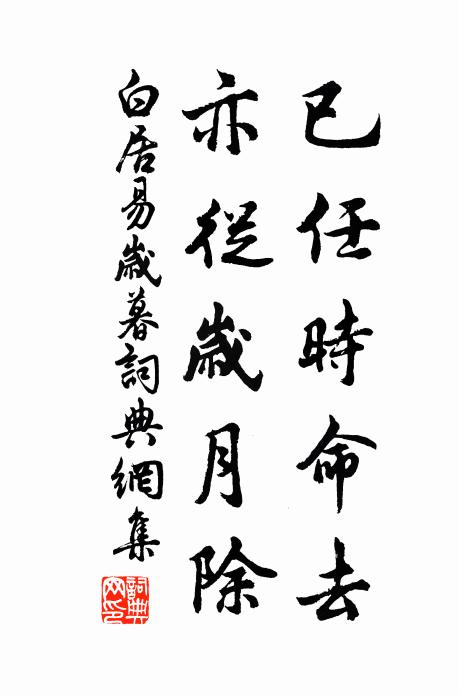 已任時命去
亦從歲月除
白居易歲暮詞典網集
詞典網印